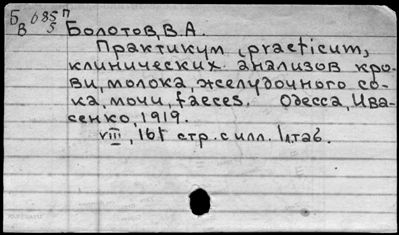 Б 685 П
В 5
Болотов, В.А.
Практикум (practicum)
клинических анализов кро-
ви, молока, желудочного со-
ка, мочи, faeces. Одесса, Ива-
сенко, 1919.
VIII, 161 стр. с илл. 1 таб.